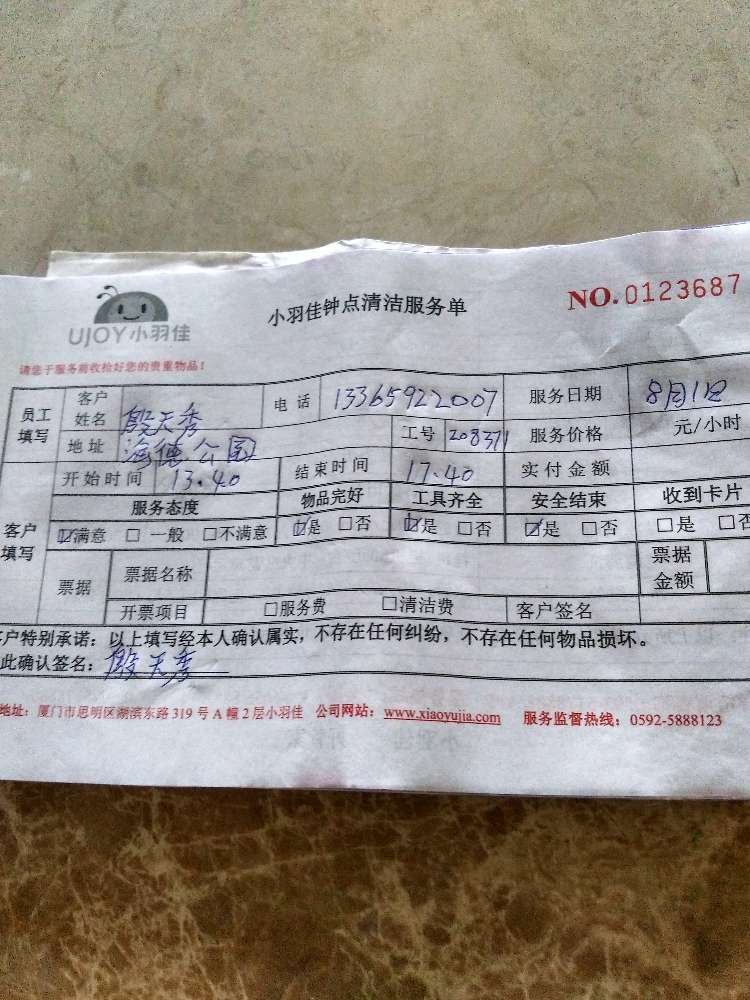 UJOY小羽佳
小羽佳钟点清洁服务单
NO.0123687
请您于服务前收检好您的贵重物品!
员工填写 客户姓名 殷天秀 电话 13365922007 服务日期 8月1日
地址 海德公园 工号 208371 服务价格 元/小时
客户填写 开始时间 13.40 结束时间 17.40 实付金额
服务态度 物品完好 工具齐全 安全结束 收到卡片
☑满意 □一般 □不满意 ☑是 □否 ☑是 □否 ☑是 □否 □是 □否
票据 票据名称 票据金额
开票项目 □服务费 □清洁费 客户签名
户特别承诺：以上填写经本人确认属实，不存在任何纠纷，不存在任何物品损坏。
此确认签名：殷天秀
地址：厦门市思明区湖滨东路319号A幢2层小羽佳 公司网站：www.xiaoyujia.com 服务监督热线：0592-5888123